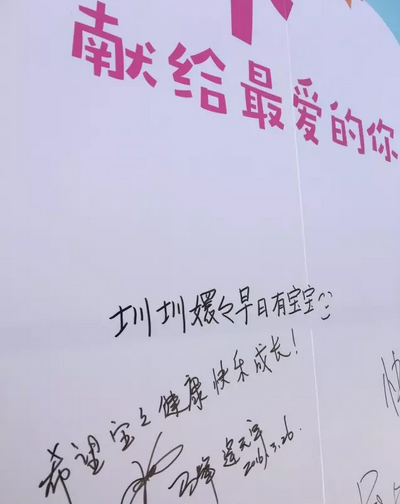 献给最爱的你
圳圳嫒々早日有宝宝
希望宝々健康快乐成长!
2016.3.26